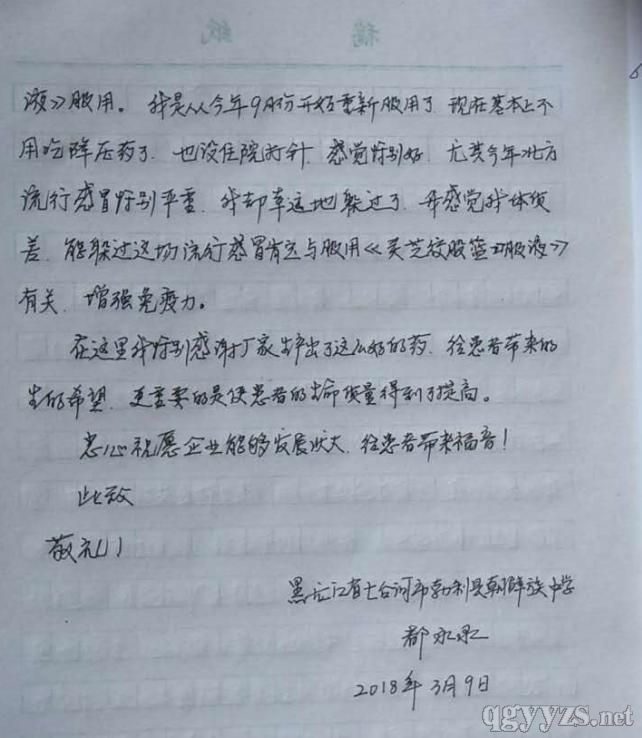 稿 纸
液》服用。我是从今年9月份开始重新服用了.现在基本上不
用吃降压药了.也没住院打针.感觉特别好.尤其今年北方
流行感冒特别严重.我却幸运地躲过了.我感觉我体质
差.能躲过这场流行感冒肯定与服用《灵芝绞股蓝口服液》
有关.增强免疫力。
在这里我特别感谢厂家生产出了这么好的药.给患者带来的
生的希望.更重要的是使患者的生命质量得到了提高。
忠心祝愿企业能够发展状大.给患者带来福音!
此致
敬礼!
黑龙江省七台河市勃利县朝鲜族中学
都永
2018年3月9日
qgyyzs.net